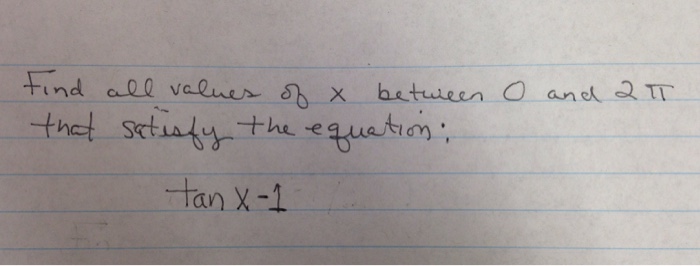 Find all values of x between 0 and 2π
that satisfy the equation:
tan x-1